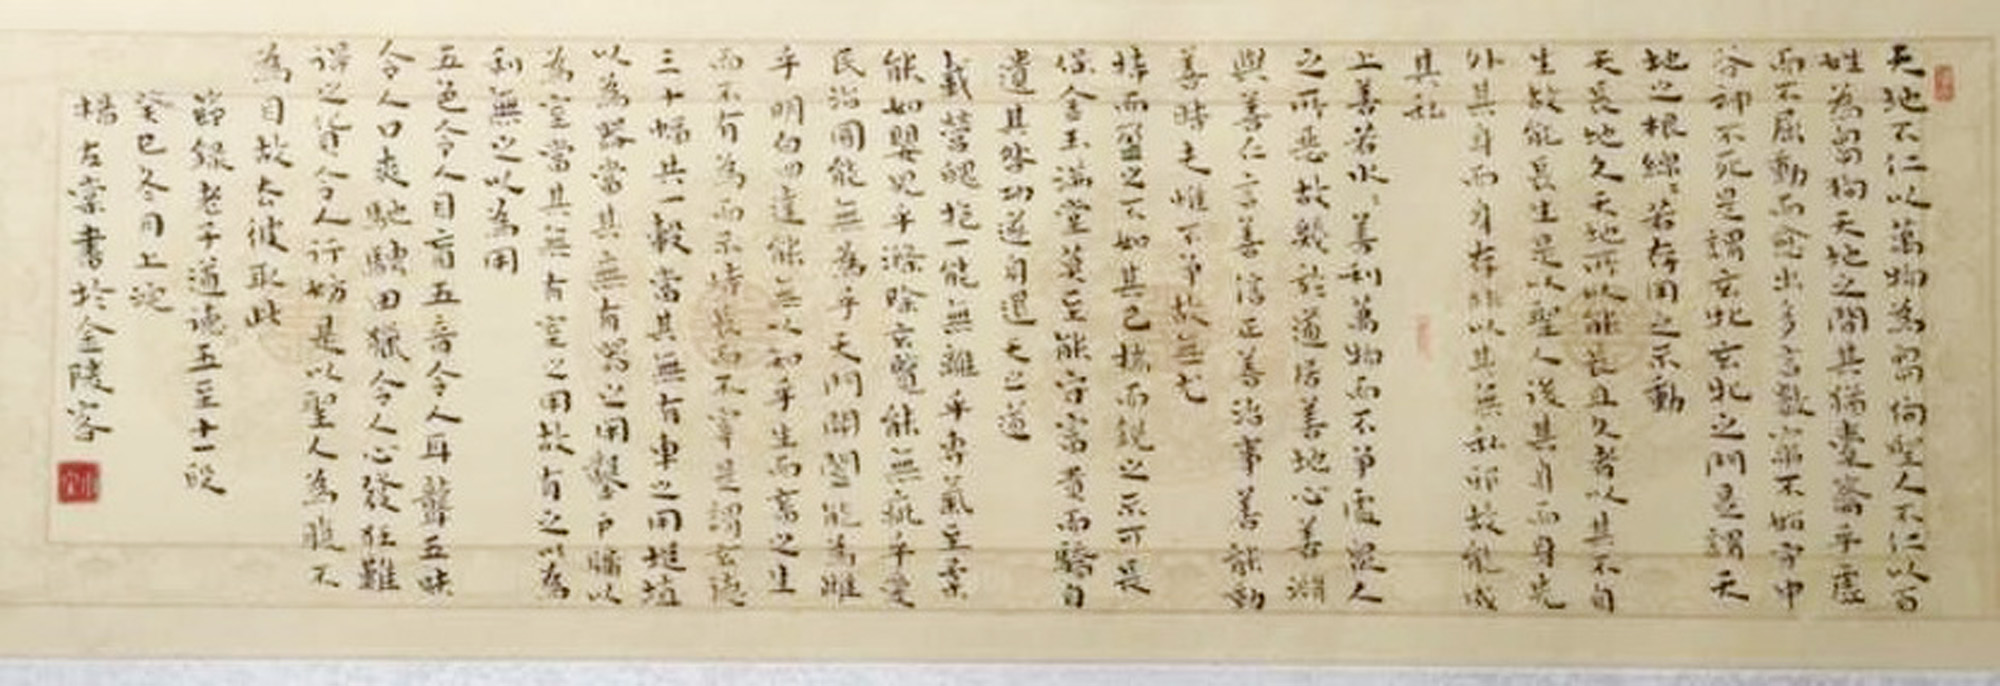 天地不仁以萬物為芻狗聖人不仁以百
姓為芻狗天地之間其猶橐籥乎虛
而不屈動而愈出多言數窮不如守中
谷神不死是謂玄牝玄牝之門是謂天
地之根綿〻若存用之不勤
天長地久天地所以能長且久者以其不自
生故能長生是以聖人後其身而身先
外其身而身存非以其無私邪故能成
其私
上善若水〻善利萬物而不爭處眾人
之所惡故幾於道居善地心善淵
與善仁言善信正善治事善能動
善時夫惟不爭故無尤
持而盈之不如其已揣而銳之不可長
保金玉滿堂莫之能守富貴而驕自
遺其咎功遂身退天之道
載營魄抱一能無離乎專氣至柔
能如嬰兒乎滌除玄覽能無疵乎愛
民治國能無為乎天門開闔能為雌
乎明白四達能無以知乎生而畜之生
而不有為而不恃長而不宰是謂玄德
三十輻共一轂當其無有車之用埏埴
以為器當其無有器之用鑿戶牖以
為室當其無有室之用故有之以為
利無之以為用
五色令人目盲五音令人耳聾五味
令人口爽馳騁田獵令人心發狂難
得之貨令人行妨是以聖人為腹不
為目故去彼取此
節錄老子道德五至十一段
癸巳冬月上浣
書於金陵客